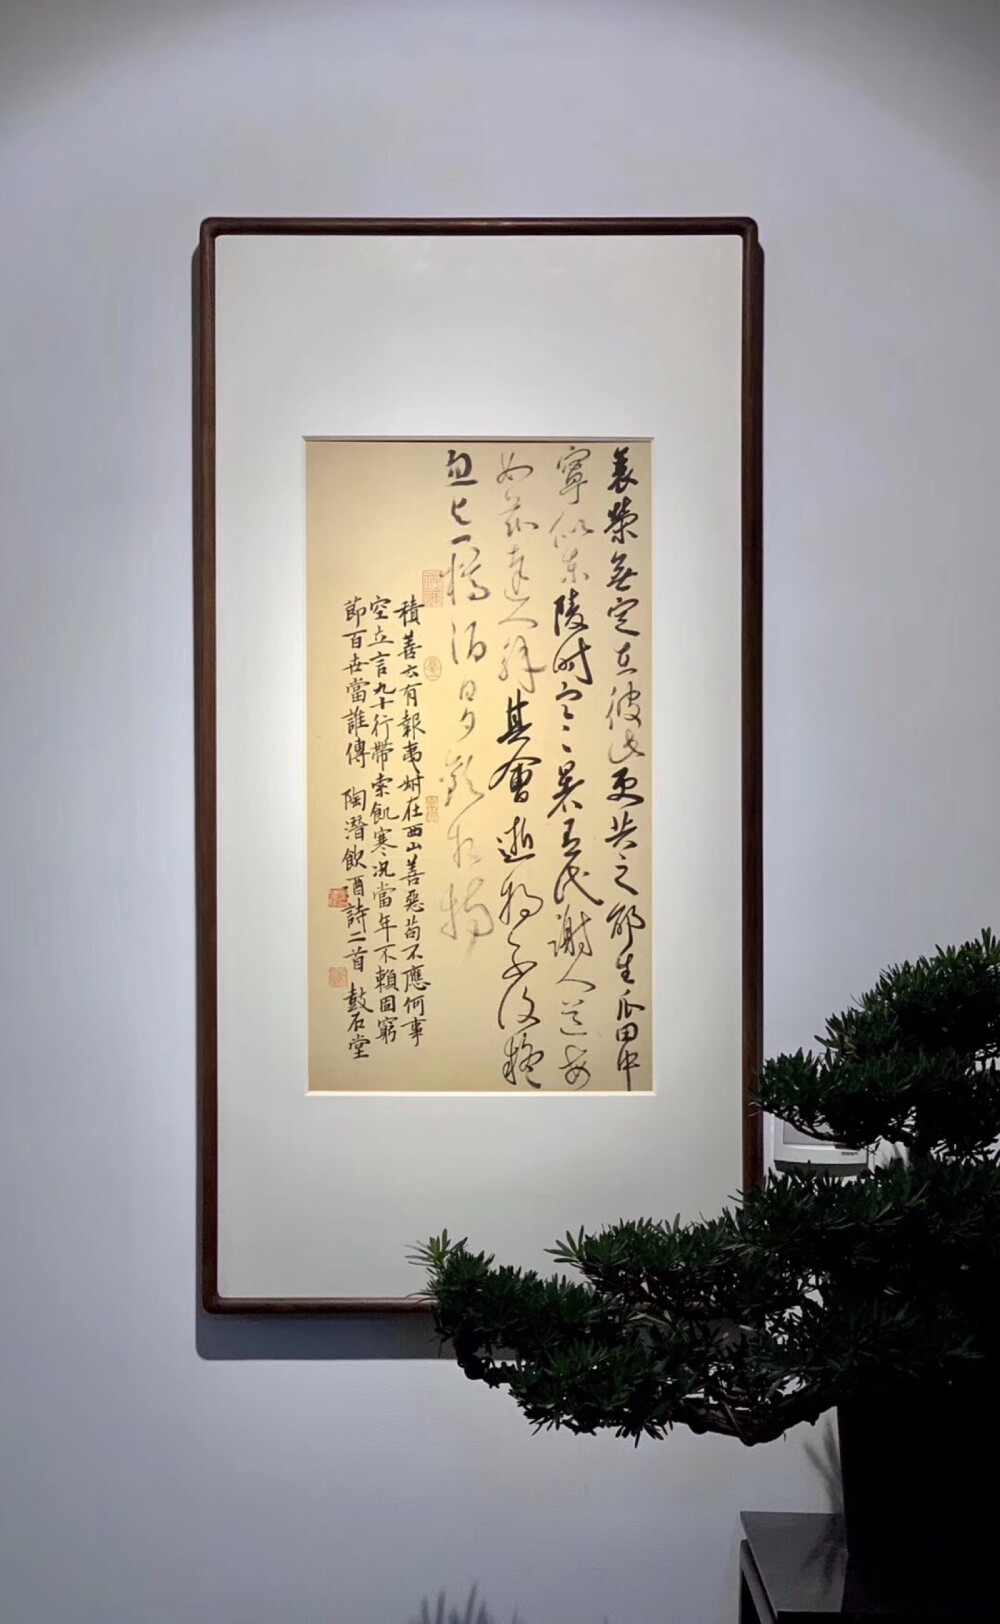 衰榮無定在彼此更共之邵生瓜田中
寧似東陵時寒暑有代謝人道每
如茲達人解其會逝將不復疑
忽與一樽酒日夕歡相持
積善云有報夷叔在西山善惡苟不應何事
空立言九十行帶索飢寒况當年不賴固窮
節百世當誰傳 陶潛飲酒詩二首 鼓石堂